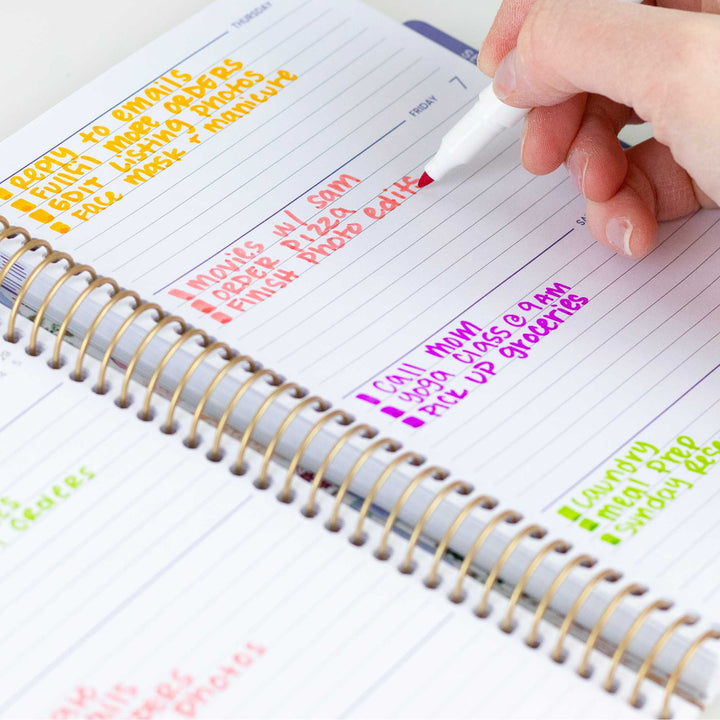 THURSDAY
REPLY to emails
FULFILL MORE ORDERS
EDIT Listing photos
Face mask + manicure
FRIDAY
7
movies w/ sam
ORDER pizza
Finish photo edits
Call mom
yoga class @ 9AM
PICK UP groceries
laundry
meal prep
sunday
ORDERS
photos